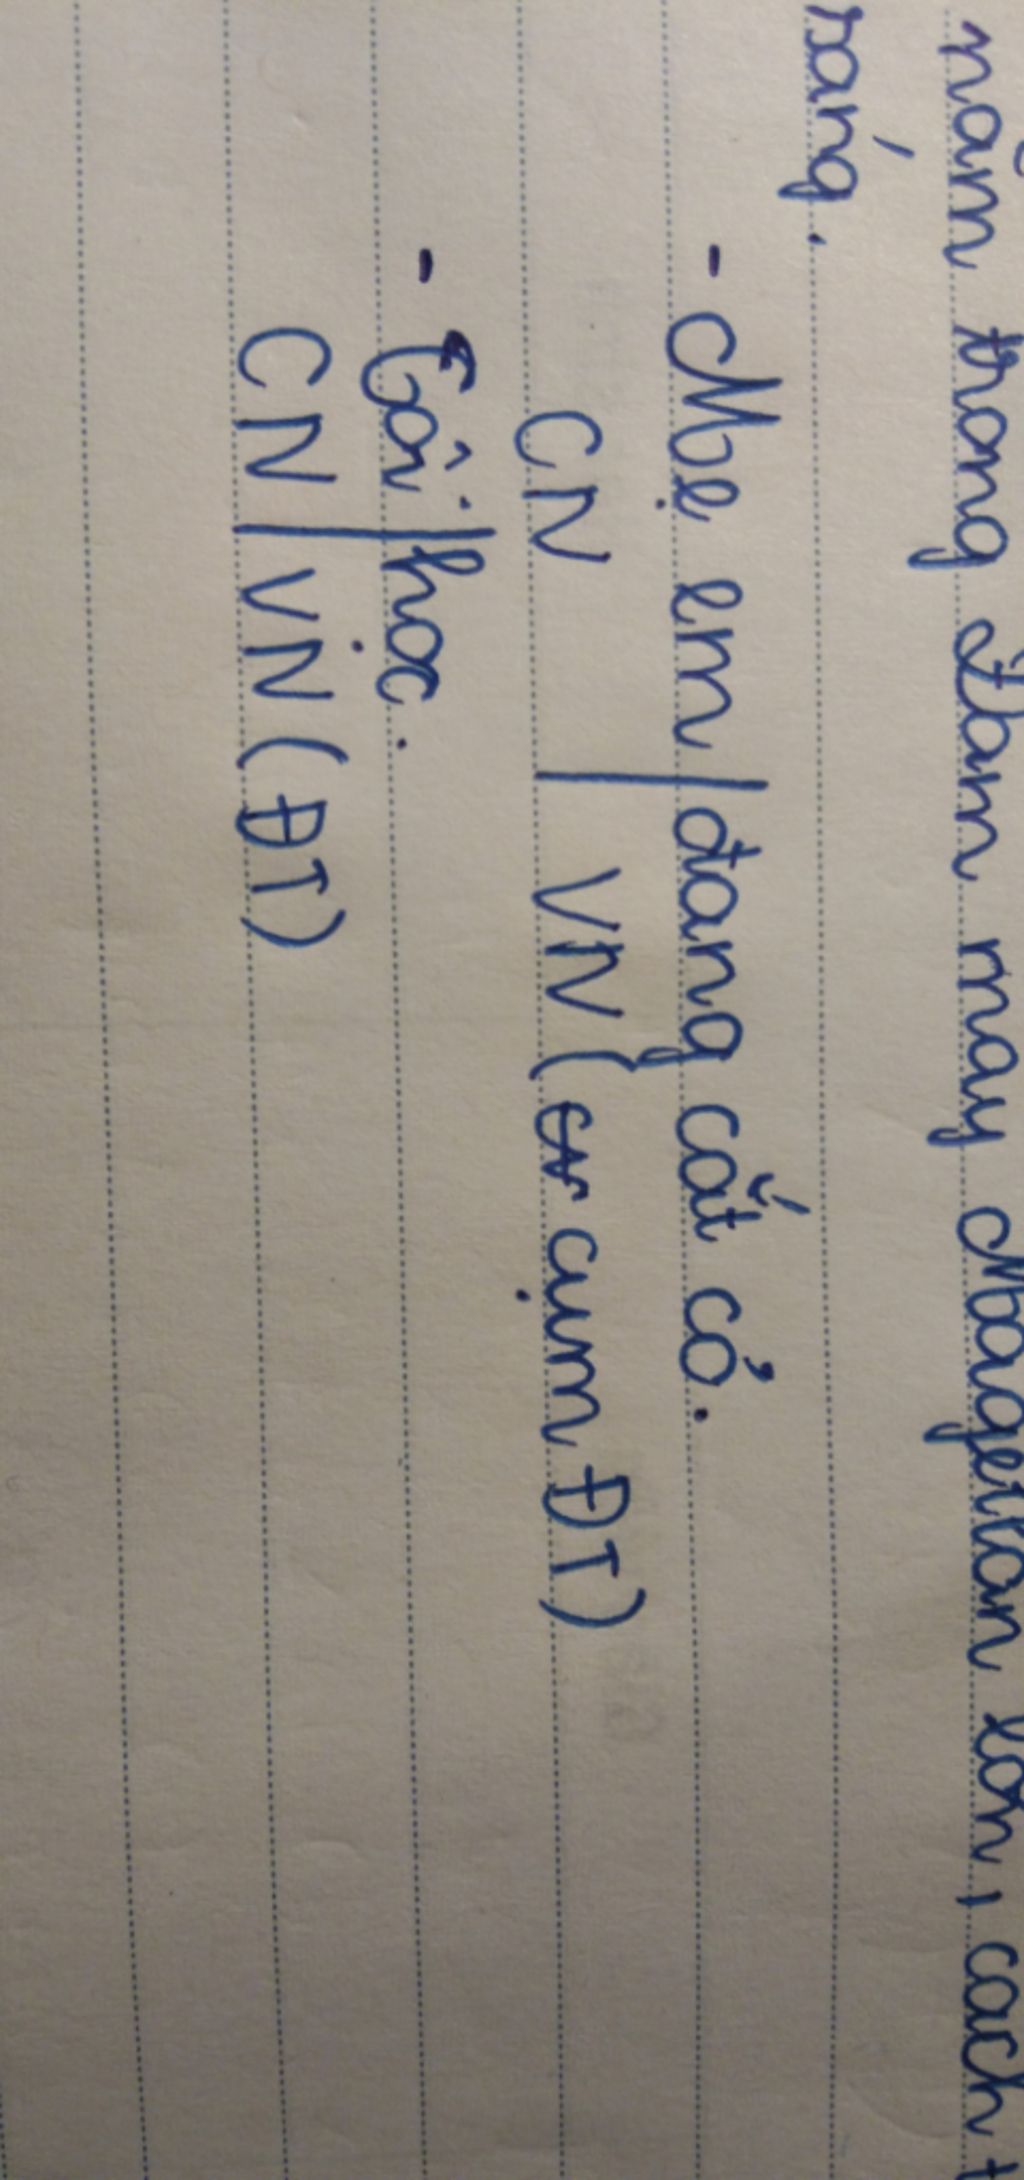 nằm trong đám mây Magellan lớn, cách
sáng.
- Mẹ em | đang cắt cỏ.
CN | VN ( cụm ĐT)
- Tôi | học.
CN | VN (ĐT)